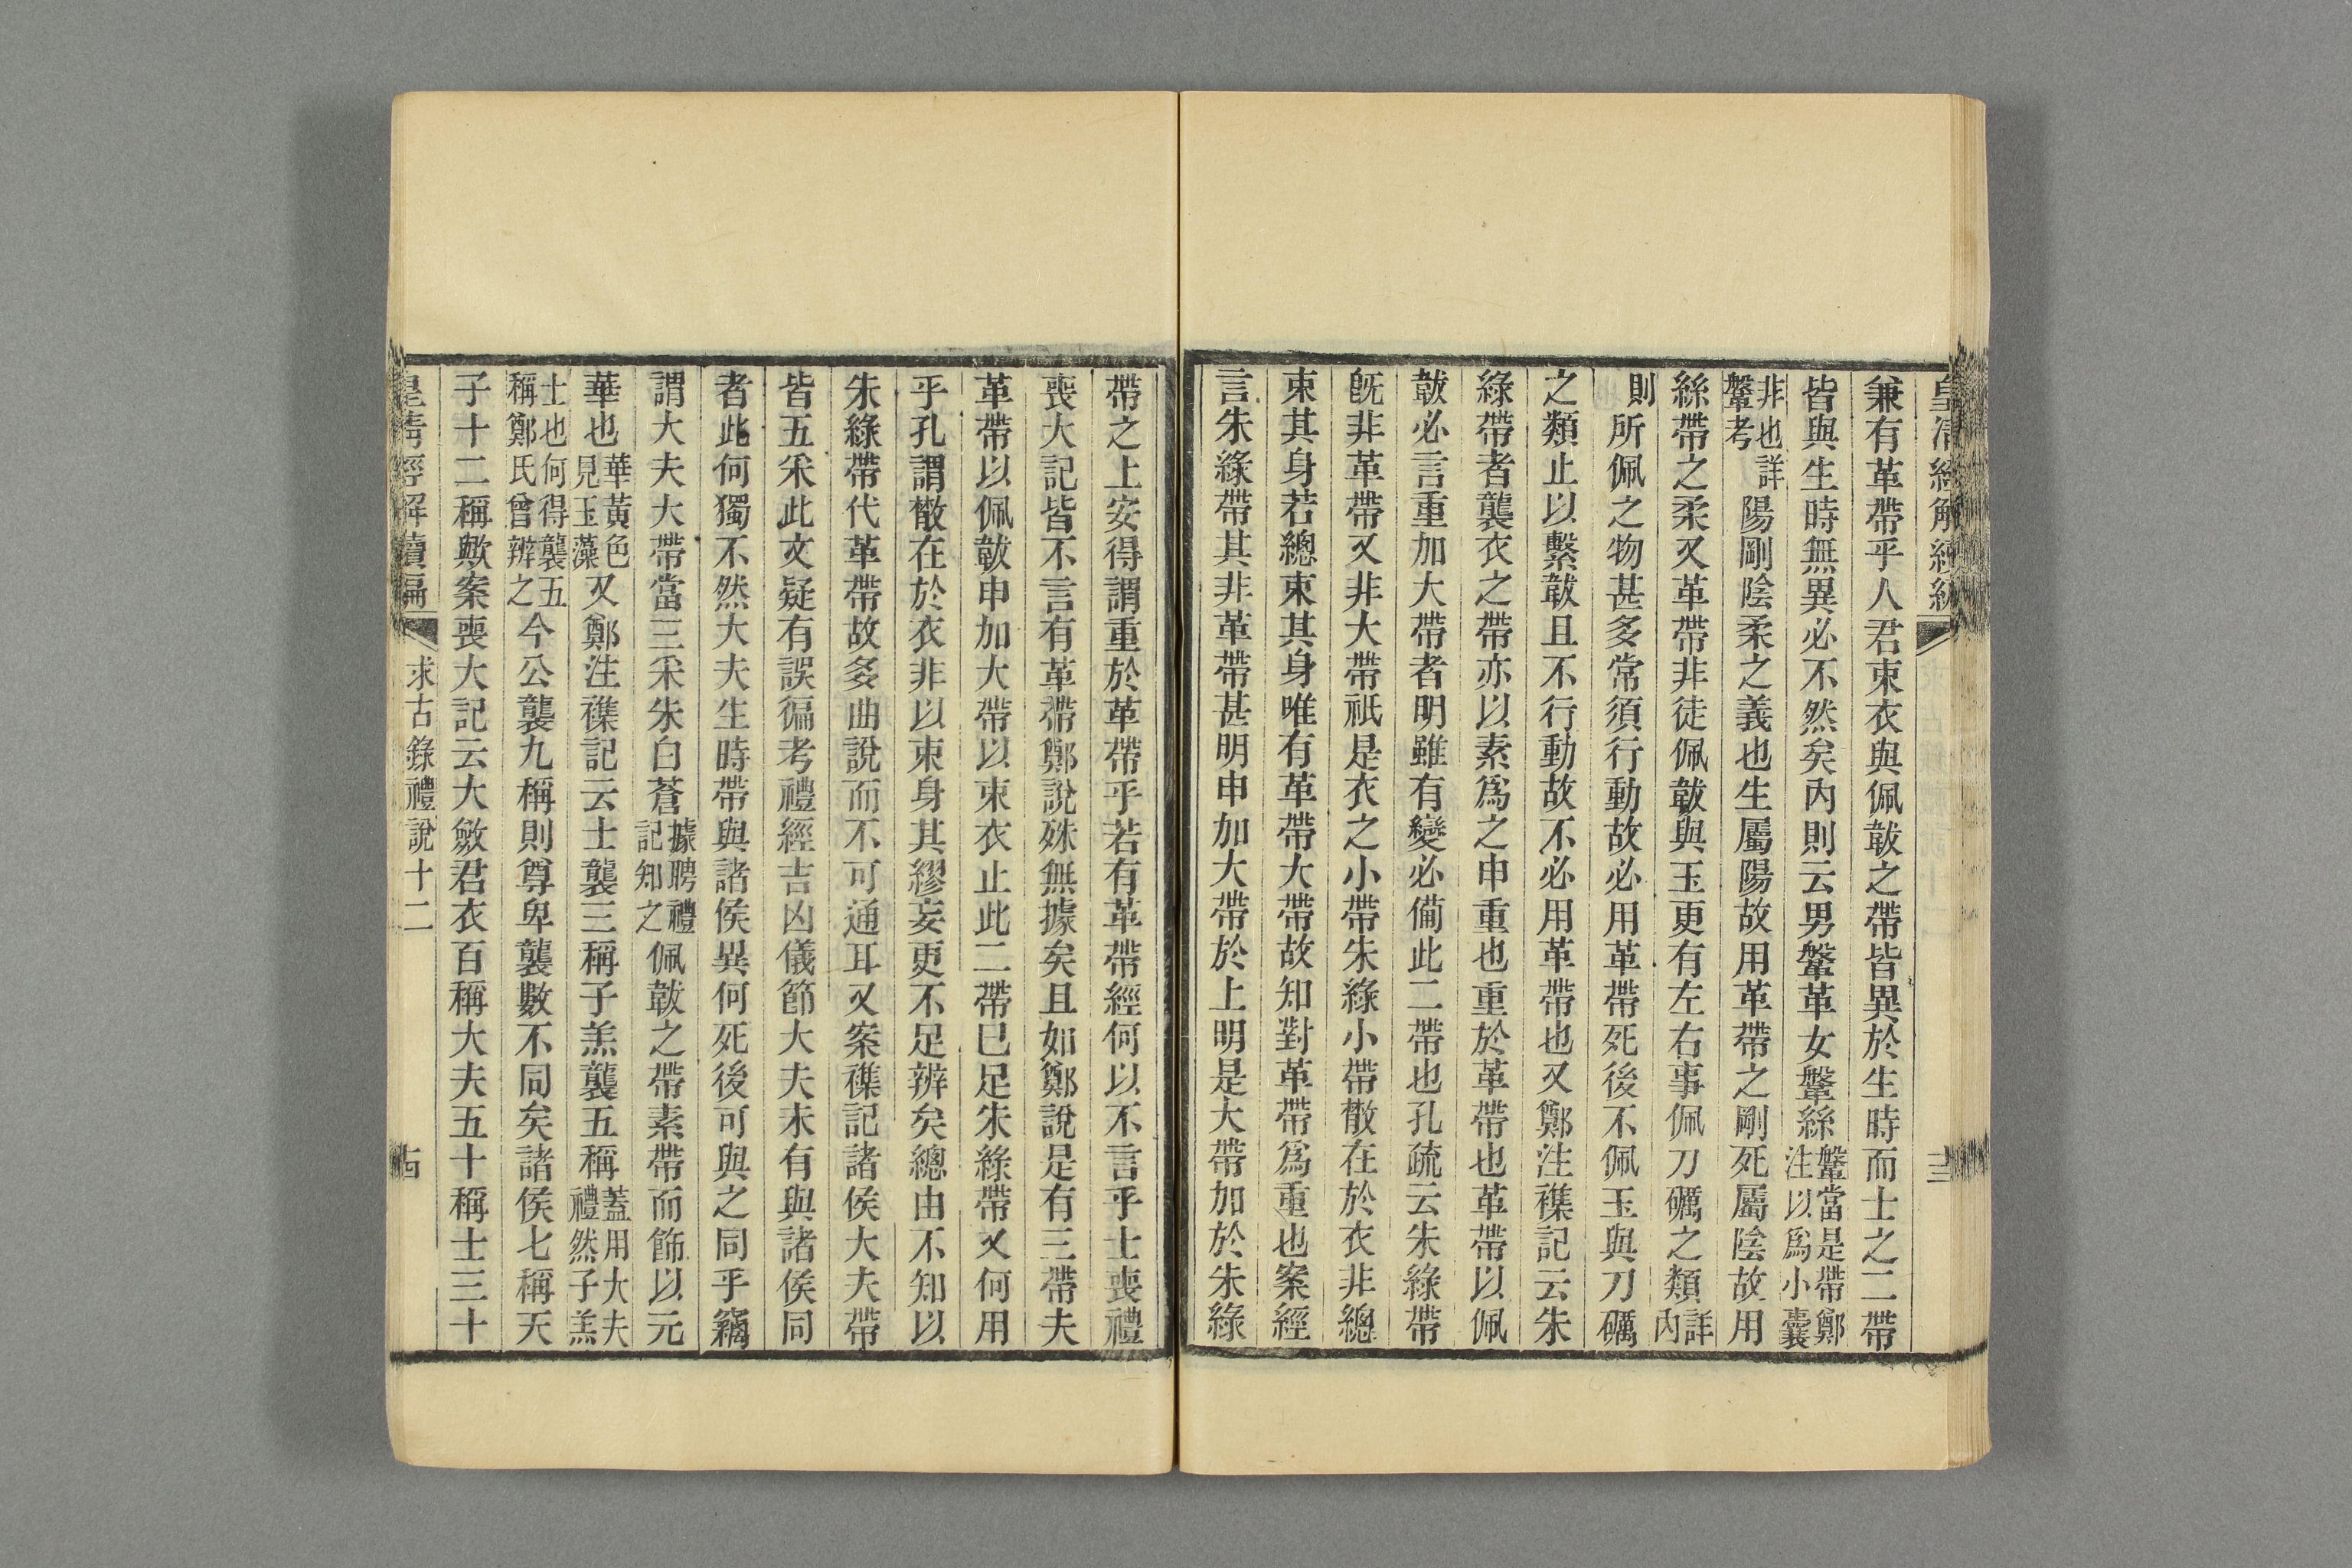 皇清經解續編
十三
兼有革帶乎人君束衣與佩韍之帶皆異於生時而士之二帶
皆與生時無異必不然矣內則云男鞶革女鞶絲鞶當是帶鄭注以爲小囊
非也詳鞶考陽剛陰柔之義也生屬陽故用革帶之剛死屬陰故用
絲帶之柔又革帶非徒佩韍與玉更有左右事佩刀礪之類詳內
則所佩之物甚多常須行動故必用革帶死後不佩玉與刀礪
之類止以繫韍且不行動故不必用革帶也又鄭注襍記云朱
綠帶者襲衣之帶亦以素爲之申重也重於革帶也革帶以佩
韍必言重加大帶者明雖有變必備此二帶也孔疏云朱綠帶
旣非革帶又非大帶祇是衣之小帶朱綠小帶散在於衣非總
束其身若總束其身唯有革帶大帶故知對革帶爲重也案經
言朱綠帶其非革帶甚明申加大帶於上明是大帶加於朱綠
帶之上安得謂重於革帶乎若有革帶經何以不言乎士喪禮
喪大記皆不言有革帶鄭說殊無據矣且如鄭說是有三帶夫
革帶以佩韍申加大帶以束衣止此二帶已足朱綠帶又何用
乎孔謂散在於衣非以束身其繆妄更不足辨矣總由不知以
朱綠帶代革帶故多曲說而不可通耳又案襍記諸侯大夫帶
皆五采此文疑有誤徧考禮經吉凶儀節大夫未有與諸侯同
者此何獨不然大夫生時帶與諸侯異何死後可與之同乎竊
謂大夫大帶當三采朱白蒼據聘禮記知之佩韍之帶素帶而飾以元
華也華黃色見玉藻又鄭注襍記云士襲三稱子羔襲五稱蓋用大夫禮然子羔
士也何得襲五稱鄭氏曾辨之今公襲九稱則尊卑襲數不同矣諸侯七稱天
子十二稱歟案喪大記云大斂君衣百稱大夫五十稱士三十
皇清經解續編
求古錄禮說十二
十四